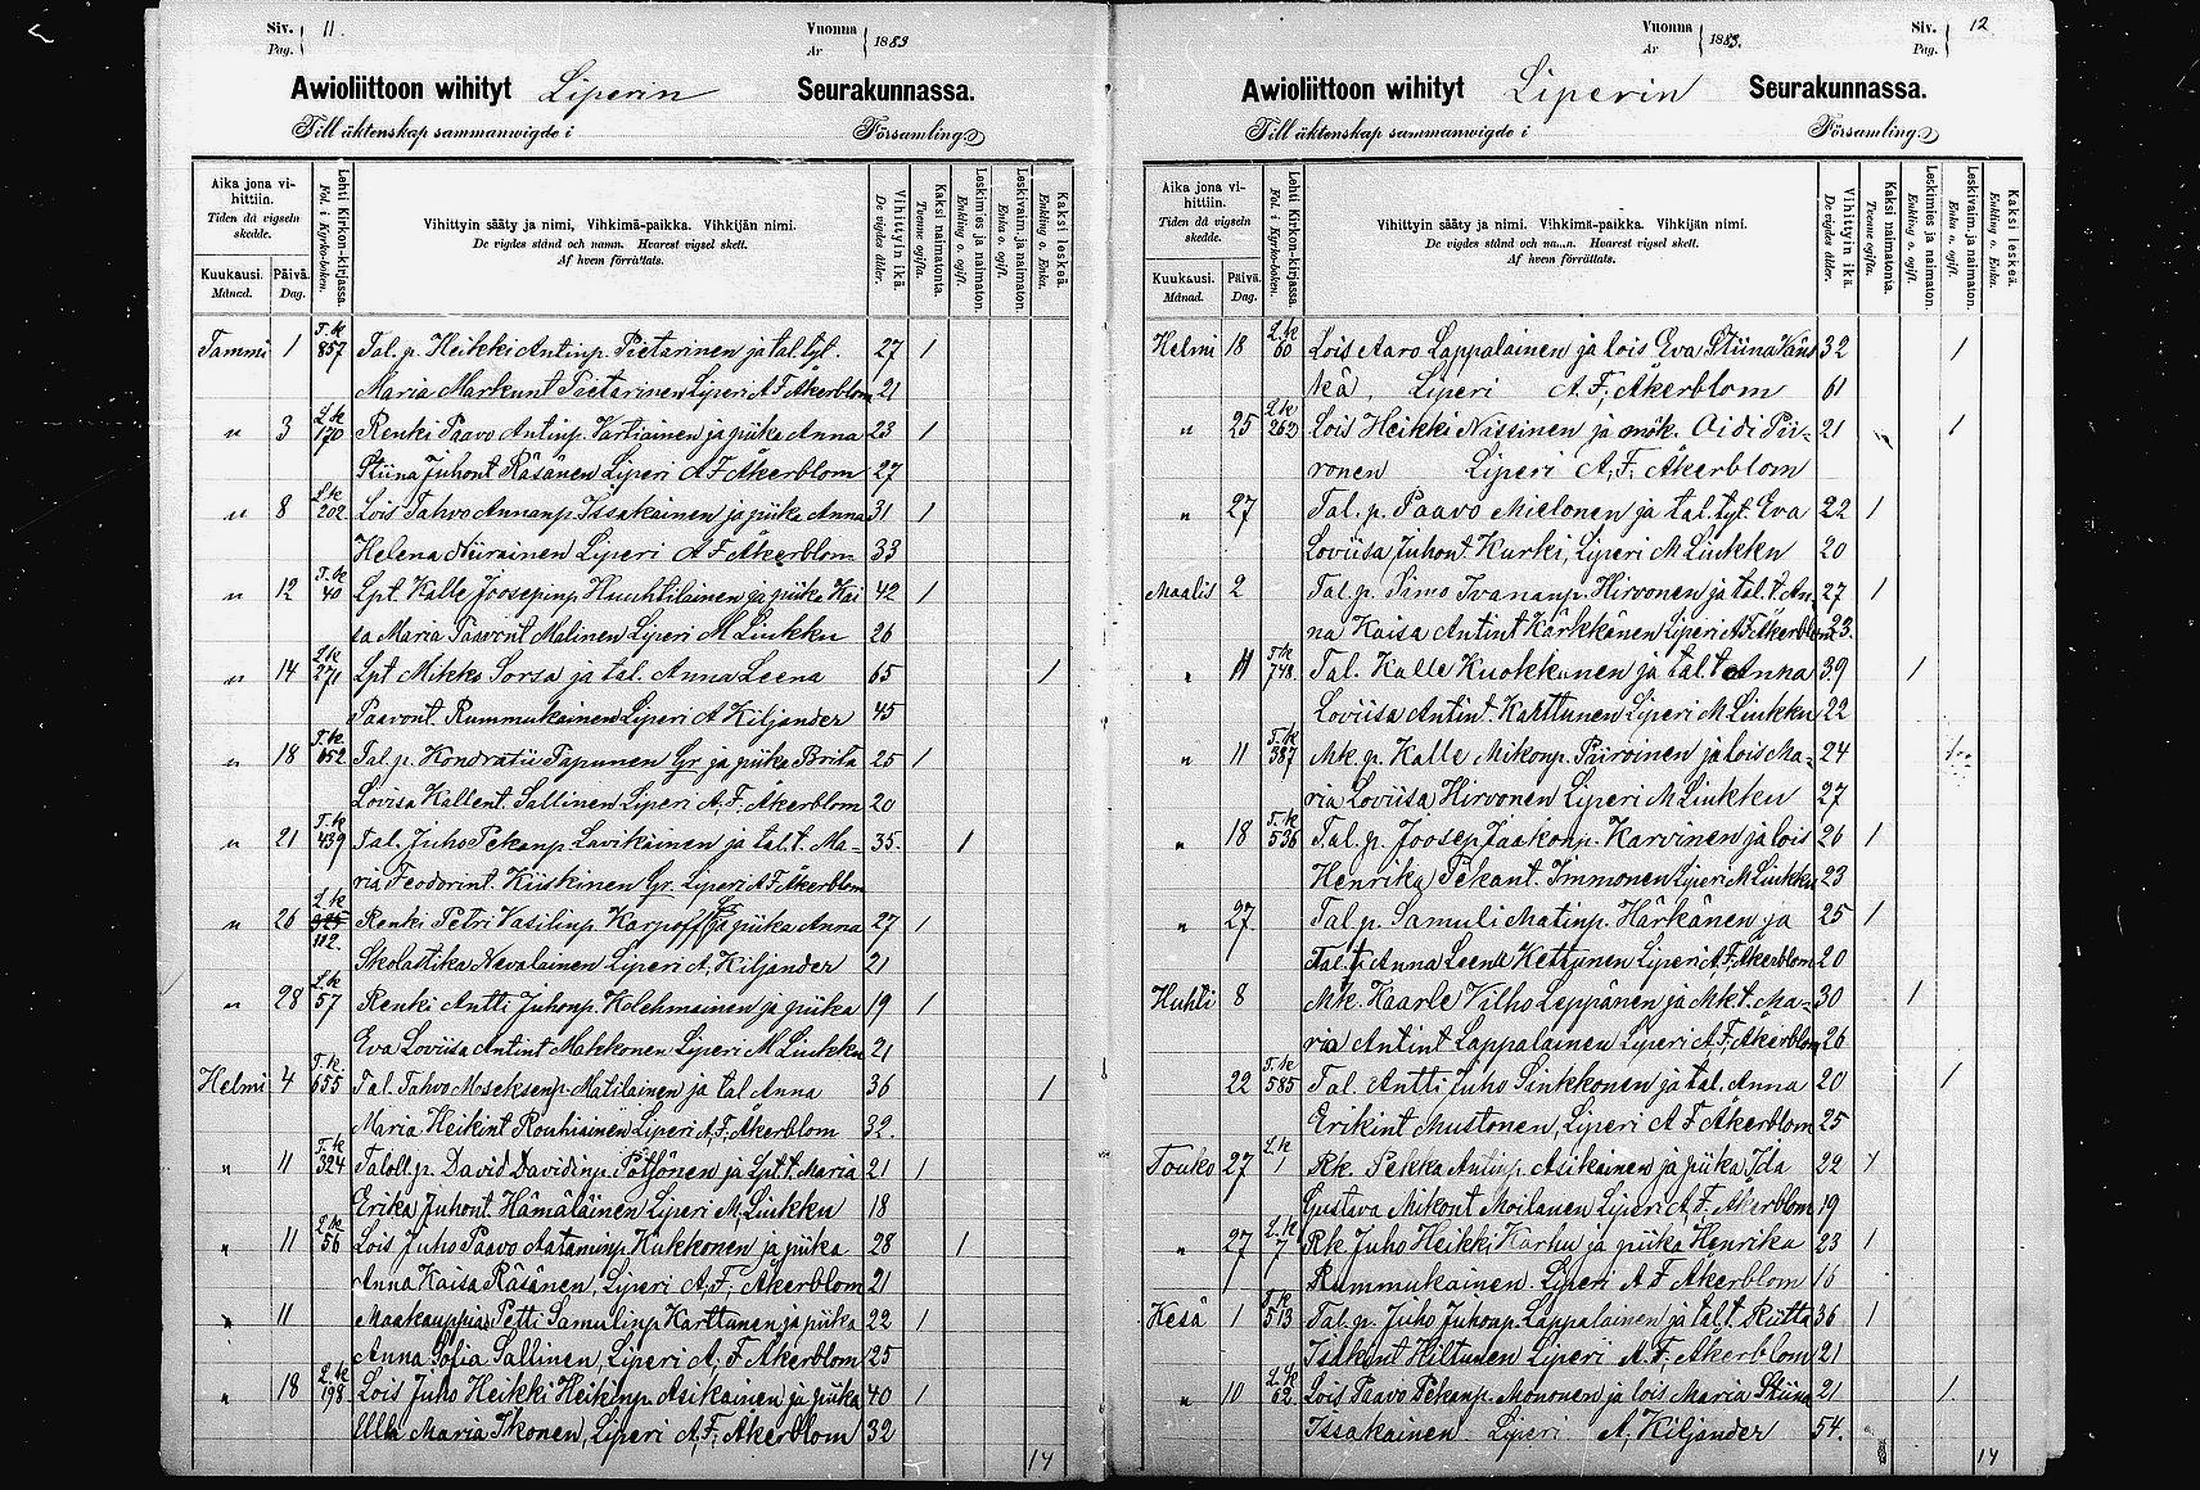 Siv. 11. Vuonna 1883
Pag. År
Awioliittoon wihityt Liperin Seurakunnassa.
Till äktenskap sammanwigde i Församling.
Aika jona vihittiin.
Tiden då vigseln skedde.
Kuukausi. Månad.
Päivä. Dag.
Lehti Kirkon-kirjassa.
Fol. i Kyrko-boken.
Vihittyin sääty ja nimi, Vihkimä-paikka. Vihkijän nimi.
De vigdes stånd och namn. Hvarest vigsel skett.
Af hvem förrättats.
Vihittyin ikä.
De vigdes ålder.
Kaksi naimatonta.
Tvenne ogifta.
Leskimies ja naimaton.
Enkling o. ogift.
Leskivaim. ja naimaton.
Enka o. ogift.
Kaksi leskeä.
Enkling o. Enka.
Tammi 1 T.k 857 Tal. p. Heikki Antinp. Pietarinen ja tal. tyt. 27 1
Maria Markunt Pietarinen Liperi A F Åkerblom 21
" 3 L.k 170 Renki Paavo Antinp. Vartiainen ja piika Anna 23 1
Stiina Juhont Räsänen Liperi A F Åkerblom 27
" 8 L.k 202 Lois Tahvo Annanp Issakainen ja piika Anna 31 1
Helena Niirainen Liperi A F Åkerblom 33
" 12 T.k 40 Lpt. Kalle Joosepinp Huuhtilainen ja piika Kai 42 1
sa Maria Paavont Malinen Liperi M Liukku 26
" 14 L.k 271 Lpt Mikko Sorsa ja tal. Anna Leena 65 1
Paavont. Rummukainen Liperi A Kiljander 45
" 18 T.k. 652 Tal. p. Kondratii Tapunen Gr. ja piika Brita 25 1
Lovisa Kallent. Sallinen Liperi A. F. Åkerblom 20
" 21 T.k 439 Tal. Juho Pekanp Lavikainen ja tal. t. Ma- 35. 1
ria Feodorint. Kiiskinen Gr. Liperi A F Åkerblom
" 26 L.k 325 112. Renki Petri Vasilinp Karpoff Gr ja piika Anna 27 1
Skolastika Nevalainen Liperi A. Kiljander 21
" 28 L.k 57 Renki Antti Juhonp. Kolehmainen ja piika 19 1
Eva Loviisa Antint Makkonen Liperi M Liukku 21
Helmi 4 T.k. 655 Tal. Tahvo Moseksenp. Matilainen ja tal Anna 36 1
Maria Heikint Rouhiainen Liperi A. F. Åkerblom 32.
" 11 T.k 324 Taloll. p. David Davidinp. Pötsönen ja Lpt. t. Maria 21 1
Erika Juhont. Hämäläinen Liperi M. Liukku 18
" 11 L.k 56 Lois Juho Paavo Aataminp Kukkonen ja piika 28 1
Anna Kaisa Räsänen, Liperi A. F. Åkerblom 21
" 11 Maakauppias Petti Samulinp Karttunen ja piika 22 1
Anna Sofia Sallinen, Liperi A. F Åkerblom 25
" 18 L.k 198 Lois Juho Heikki Heikinp. Asikainen ja piika 40 1
Ulla Maria Ikonen, Liperi A. F. Åkerblom 32
14
Vuonna 1883. Siv. 12
År Pag.
Awioliittoon wihityt Liperin Seurakunnassa.
Till äktenskap sammanwigde i Församling.
Aika jona vihittiin.
Tiden då vigseln skedde.
Kuukausi. Månad.
Päivä. Dag.
Lehti Kirkon-kirjassa.
Fol. i Kyrko-boken.
Vihittyin sääty ja nimi. Vihkimä-paikka. Vihkijän nimi.
De vigdes stånd och na...n. Hvarest vigsel skett.
Af hvem förrättats.
Vihittyin ikä.
De vigdes ålder.
Kaksi naimatonta.
Tvenne ogifta.
Leskimies ja naimaton.
Enkling o. ogift.
Leskivaim. ja naimaton.
Enka o. ogift.
Kaksi leskeä.
Enkling o. Enka.
Helmi 18 L.k 60 Lois Aaro Lappalainen ja lois Eva Stiina Väns 32 1
kä, Liperi A. F. Åkerblom 61
" 25 L.k 262 Lois Heikki Nissinen ja mök. Aidi Pii- 21 1
ronen Liperi A. F. Åkerblom
" 27 Tal. p. Paavo Mielonen ja tal. tyt. Eva 22 1
Loviisa Juhont. Kurki, Liperi M Liukku 20
Maalis 2 Tal. p. Simo Ivananp. Hirvonen ja tal. t. An- 27 1
na Kaisa Antint Kärkkänen Liperi A F Åkerblom 23.
" 11 T.k 748. Tal. Kalle Kuokkanen ja tal. t Anna 39 1
Loviisa Antint. Karttunen Liperi M Liukku 22
" 11 T.k 387 Mk. p. Kalle Mikonp. Päivinen ja lois Ma- 24 1
ria Loviisa Hirvonen Liperi M Liukku 27
" 18 T.k 536 Tal. p. Joosep Jaakonp. Karvinen ja lois 26 1
Henrika Pekant. Immonen Liperi M Liukku 23
" 27. Tal. p. Samuli Matinp. Härkänen ja 25 1
Tal. t. Anna Leena Kettunen Liperi A. F. Åkerblom 20
Huhti 8 Mk. Kaarle Vilho Leppänen ja Mk. t. Ma- 30 1
ria Antint Lappalainen Liperi A. F. Åkerblom 26
22 T.k 585 Tal. Antti Juho Sinkkonen ja tal. Anna 20 1
Erikint Mustonen, Liperi A F Åkerblom 25
Touko 27 L.k 1 Rk. Pekka Antinp. Asikainen ja piika Ida 22 1
Gustava Mikont Moilanen Liperi A. F. Åkerblom 19
" 27 L.k 7 Rk Juho Heikki Karhu ja piika Henrika 23 1
Rummukainen. Liperi A F Åkerblom 16
Kesä 1 T.k 513 Tal. p. Juho Juhonp. Lappalainen ja tal. t. Riitta 36 1
Isakint Hiltunen Liperi A. F. Åkerblom 21
" 10 L.k 62 Lois Paavo Pekanp. Mononen ja lois Maria Stiina 21 1.
Issakainen Liperi A. Kiljander 54.
14